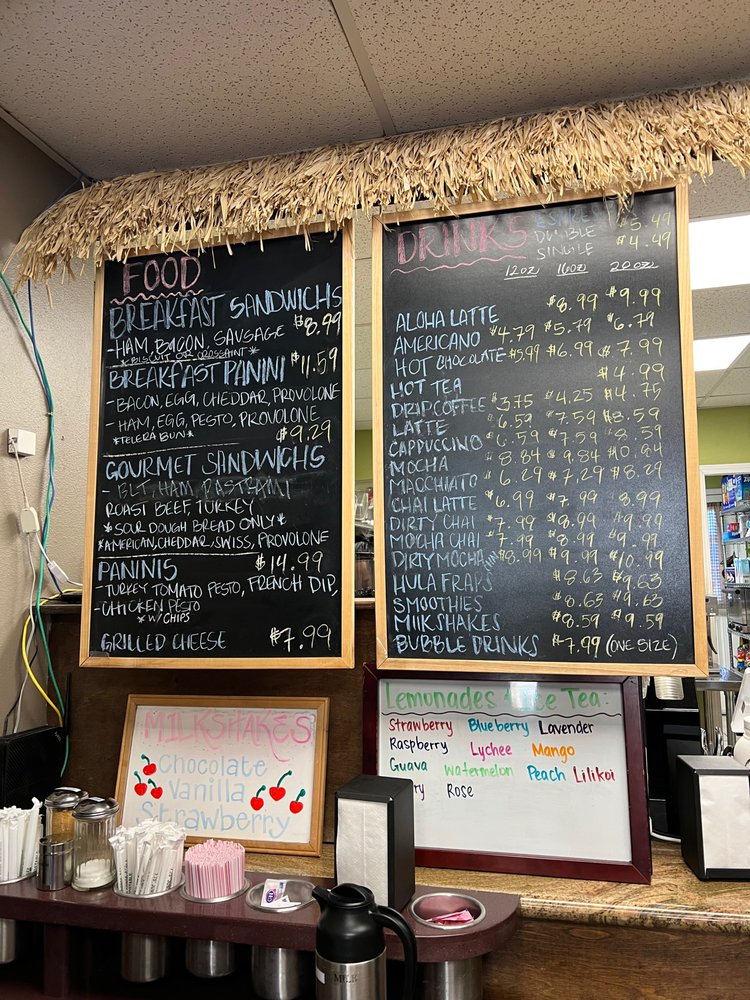 FOOD
BREAKFAST SANDWICHS
-HAM, BACON, SAUSAGE $8.99
*BISCUIT OR CROSSAINT*
BREAKFAST PANINI $11.59
-BACON, EGG, CHEDDAR, PROVOLONE
-HAM, EGG, PESTO, PROVOLONE
*TELERA BUN*
$9.29
GOURMET SANDWICHS
HAM,
ROAST BEEF, TURKEY
*SOUR DOUGH BREAD ONLY*
*AMERICAN, CHEDDAR, SWISS, PROVOLONE
PANINIS $14.99
-TURKEY TOMATO PESTO, FRENCH DIP,
-CHICKEN PESTO
*W/ CHIPS
GRILLED CHEESE $7.99
DRINKS
$5.49
DOUBLE
SINGLE $4.49
12oz 16oz 20oz
ALOHA LATTE $8.99 $9.99
AMERICANO $4.79 $5.79 $6.79
HOT CHOCOLATE $5.99 $6.99 $7.99
HOT TEA $4.99
DRIP COFFEE $3.75 $4.25 $4.75
LATTE $6.59 $7.59 $8.59
CAPPUCCINO $6.59 $7.59 $8.59
MOCHA $8.84 $9.84 $10.84
MACCHIATO $6.29 $7.29 $8.29
CHAI LATTE $6.99 $7.99 8.99
DIRTY CHAI $7.99 $8.99 $9.99
MOCHA CHAI $7.99 $8.99 $9.99
DIRTY MOCHA $8.99 $9.99 $10.99
HULA FRAPS $8.63 $9.63
SMOOTHIES $8.63 $9.63
MILKSHAKES $8.59 $9.59
BUBBLE DRINKS $7.99 (ONE SIZE)
MILKSHAKES
Chocolate
Vanilla
Strawberry
Lemonades Ice Tea
Strawberry Blueberry Lavender
Raspberry Lychee Mango
Guava Watermelon Peach Lilikoi
Rose
MILK